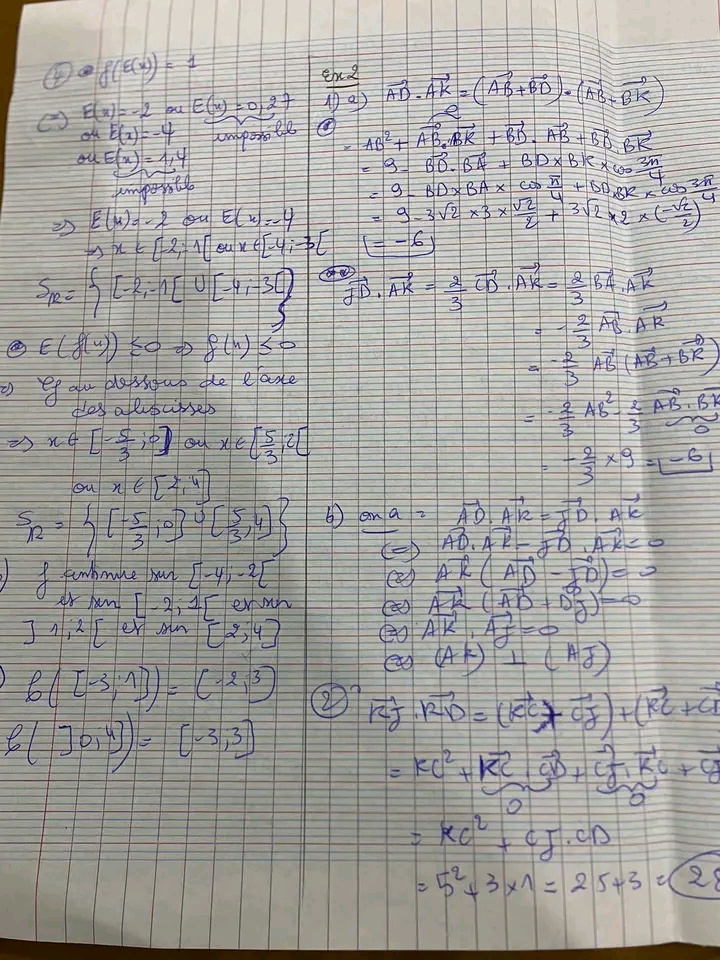 ④ f(E(x)) = 1
(=) E(x)=-2 ou E(x)=0,27
ou E(x)=-4 impossible
ou E(x)=1,4
impossible
=> E(x)=-2 ou E(x)=-4
=> x ∈ [-2;-1[ ou x ∈ [-4;-3[
S_IR = { [-2;-1[ ∪ [-4;-3[ }
E(f(x)) ≤ 0 => f(x) ≤ 0
Cf au dessous de l'axe
des abscisses
=> x ∈ [-5/3;0] ou x ∈ [5/3;2[
ou x ∈ [2,4]
S_IR = { [-5/3;0] ∪ [5/3;4] }
f continue sur [-4;-2[
et sur [-2;1[ et sur
]1,2[ et sur [2;4]
f([-3;1]) = [-2;3)
f(]0,4]) = [-3;3]
Ex 2
1) a) AD⃗ . AK⃗ = (AB⃗ + BD⃗) . (AB⃗ + BK⃗)
= AB² + AB⃗ . BK⃗ + BD⃗ . AB⃗ + BD⃗ . BK⃗
= 9 - BD⃗ . BA⃗ + BD × BK × cos 3π/4
= 9 - BD × BA × cos π/4 + BD . BK × cos 3π/4
= 9 - 3√2 × 3 × √2/2 + 3√2 × 2 × (-√2/2)
= -6
JD⃗ . AK⃗ = 2/3 CD⃗ . AK⃗ = 2/3 BA⃗ . AK⃗
= -2/3 AB⃗ . AK⃗
= -2/3 AB⃗ (AB⃗ + BK⃗)
= -2/3 AB² - 2/3 AB⃗ . BK⃗
0
= -2/3 × 9 = -6
b) on a = AD⃗ . AK⃗ = JD⃗ . AK⃗
(=) AD⃗ . AK⃗ - JD⃗ . AK⃗ = 0
(=) AK⃗ (AD⃗ - JD⃗) = 0
(=) AK⃗ (AD⃗ + DJ⃗) = 0
(=) AK⃗ . AJ⃗ = 0
(=) (AK) ⊥ (AJ)
② KJ⃗ . KD⃗ = (KC⃗ + CJ⃗) + (KC⃗ + CD
= KC² + KC⃗ . CD⃗ + CJ⃗ . KC⃗ + CJ
0 0
= KC² + CJ . CD
= 5² + 3 × 1 = 25 + 3 = 28